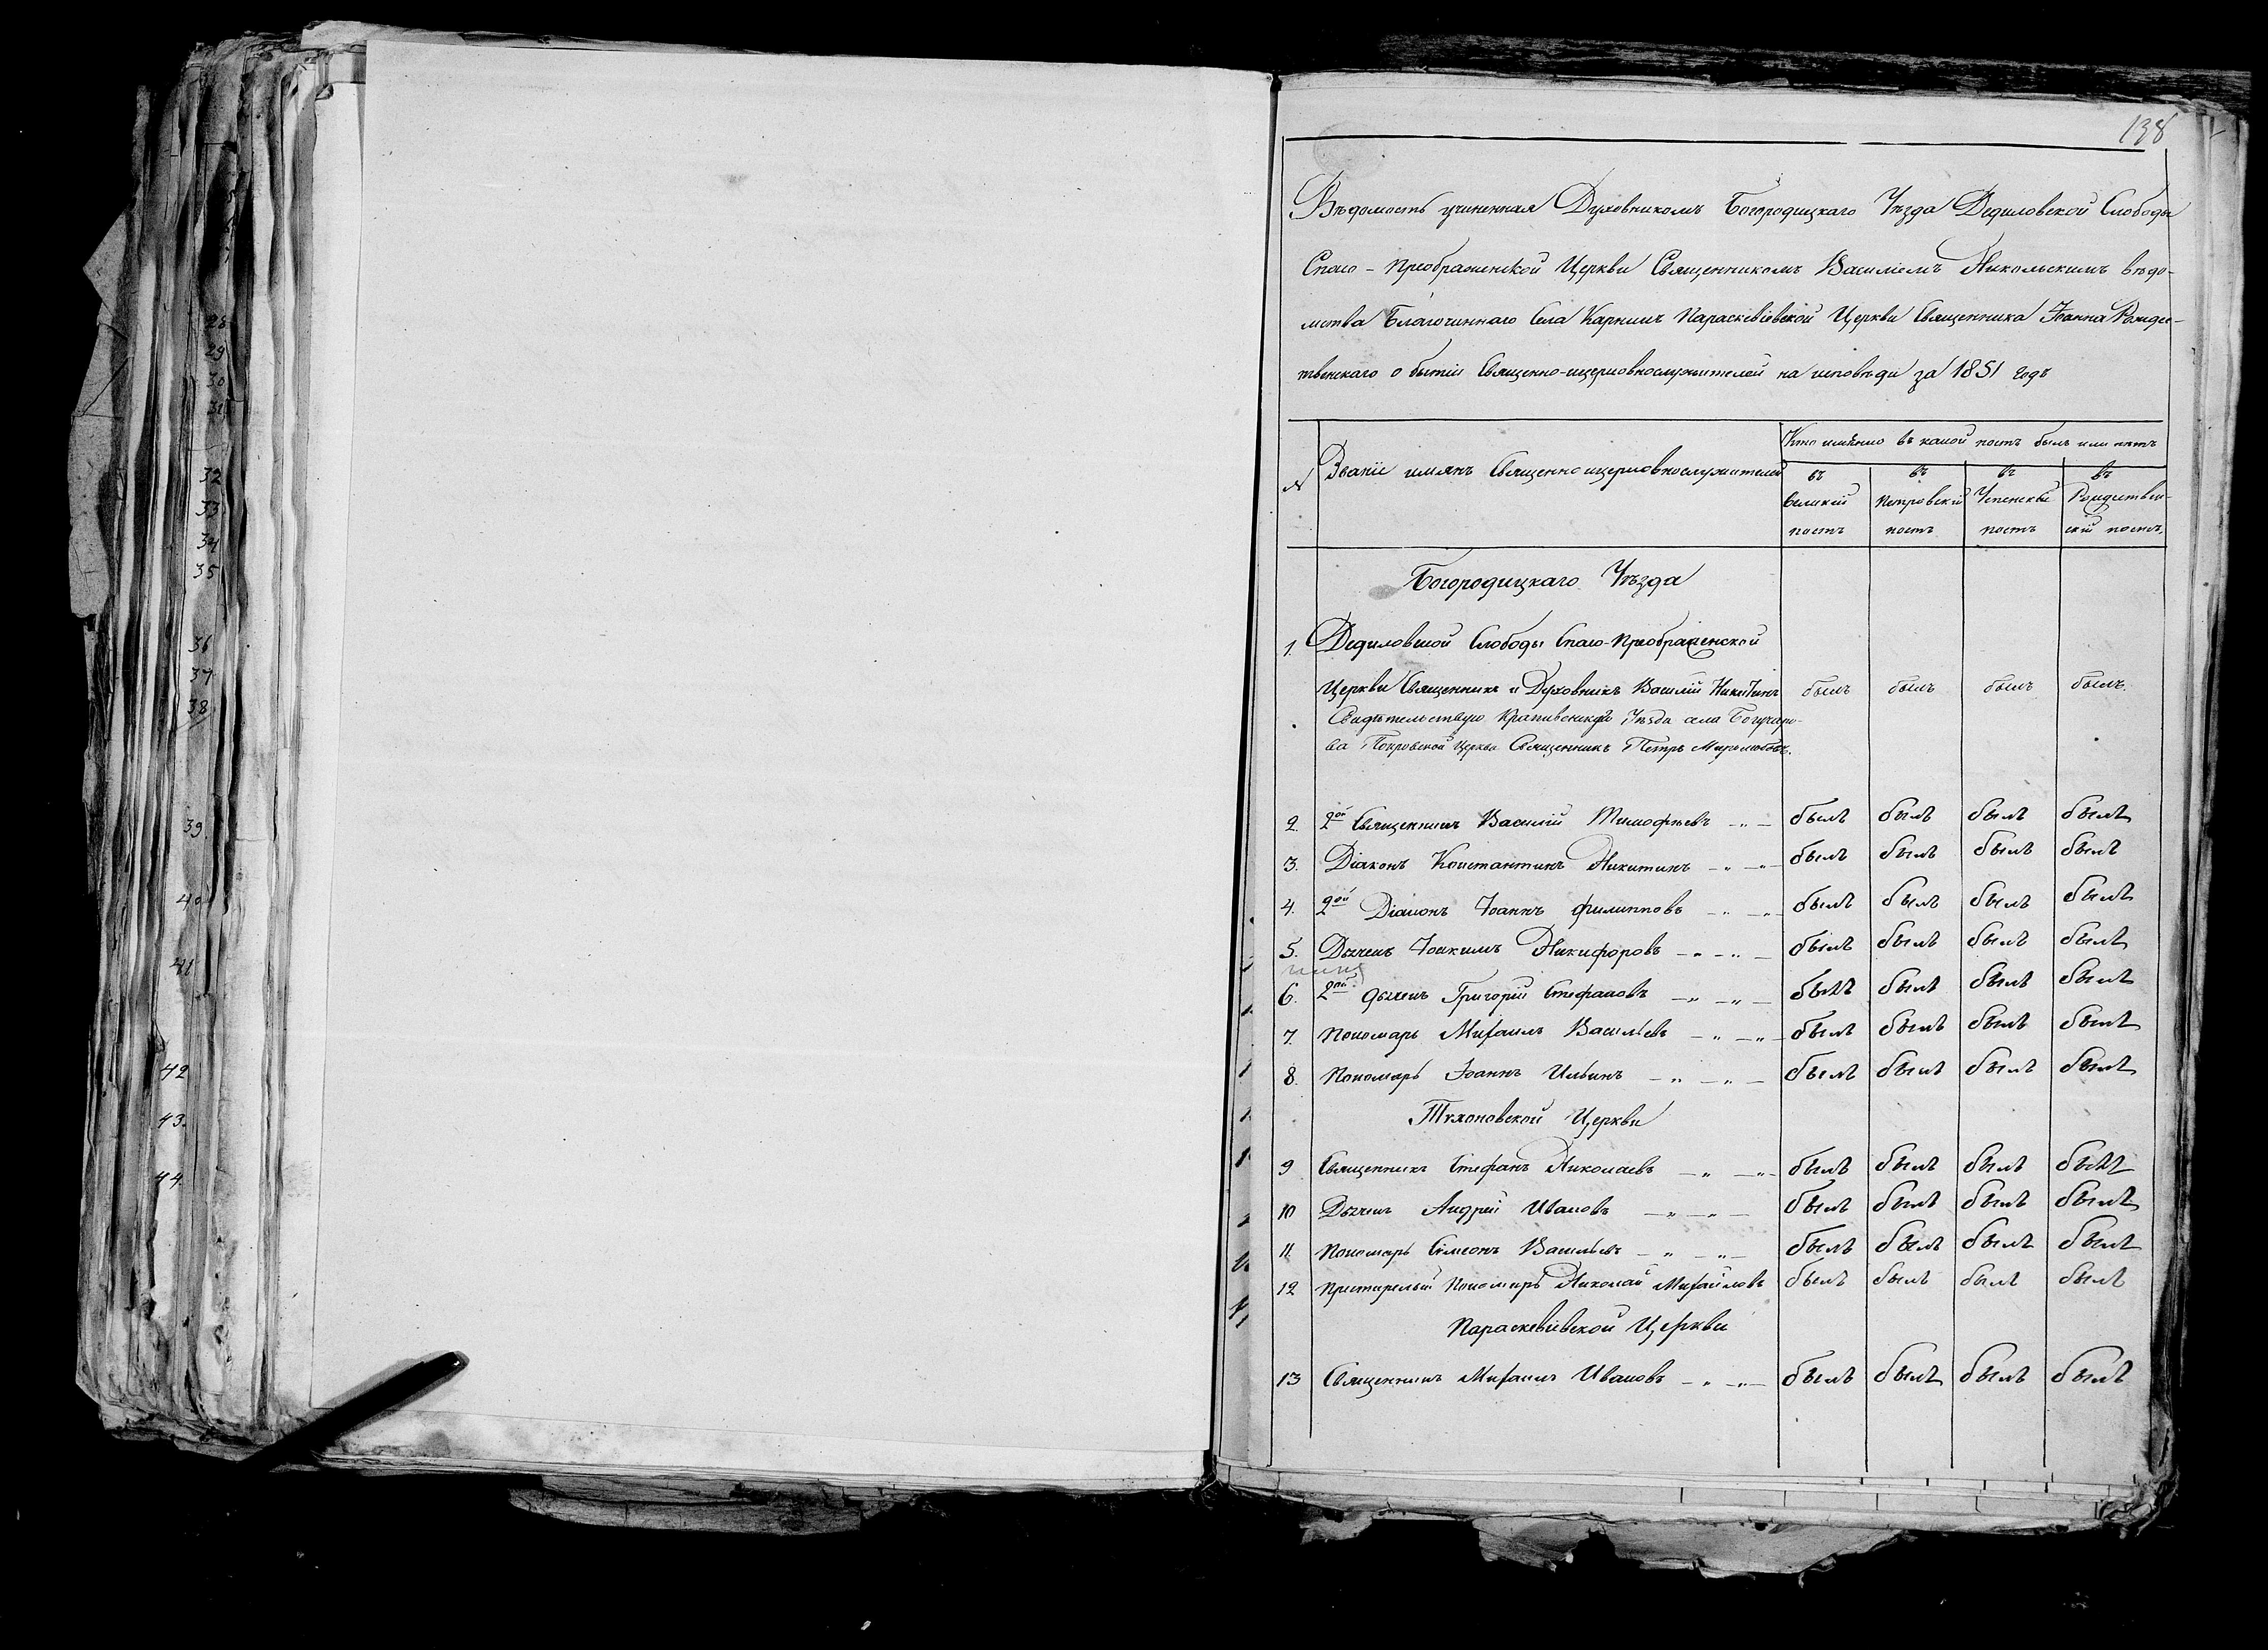 28
29
30
31
32
33
34
35
36
37
38
39.
40
41
42
43.
44.
138
Вѣдомость учиненная Духовникомъ Богородицкаго Уѣзда Дедиловской Слободы
Спасо-Преображенской Церкви Священникомъ Василіемъ Никольскимъ вѣдо-
мства Благочиннаго Села Карницъ Параскевіевской Церкви Священника Іоанна Рождес-
твенскаго о бытіи Священно-ицерковнослужителей на исповѣди за 1851 годъ
№ Званіе имянъ Священно ицерковнослужителей
Кто имѣнно въ какой постъ былъ или нѣтъ
въ Великій постъ
въ Петровскій постъ
въ Успенскій постъ
въ Рождествен-скій постъ
Богородицкаго Уѣзда
1. Дедиловской Слободы Спасо-Преображенской
Церкви Священникъ и Духовникъ Василій Никитинъ былъ былъ былъ былъ.
Свидѣтельствую Крапивенскаго Уѣзда села Богучаро-
ва Покровской Церкви Священникъ Петръ Миролюбовъ.
2. 2ой Священникъ Василій Тимофѣевъ былъ былъ былъ былъ
3. Діаконъ Константинъ Никитинъ былъ былъ былъ былъ
4. 2ой Діаконъ Іоаннъ Филипповъ былъ былъ былъ былъ
5. Дьячекъ Іоакимъ Никифоровъ былъ былъ былъ былъ
6. 2ой дьячекъ Григорій Стефановъ былъ былъ былъ былъ
7. Пономарь Михаилъ Васильевъ былъ былъ былъ былъ
8. Пономарь Іоаннъ Ильинъ былъ былъ былъ былъ
Тихоновской Церкви
9 Священникъ Стефанъ Николаевъ былъ былъ былъ былъ
10 Дьячекъ Андрей Ивановъ былъ былъ былъ былъ
11. Пономарь Сімеонъ Васильевъ былъ былъ былъ былъ
12 Престарелый Пономарь Николай Михайловъ былъ былъ былъ былъ
Параскевіевской Церкви
13 Священникъ Михаилъ Ивановъ былъ былъ былъ былъ